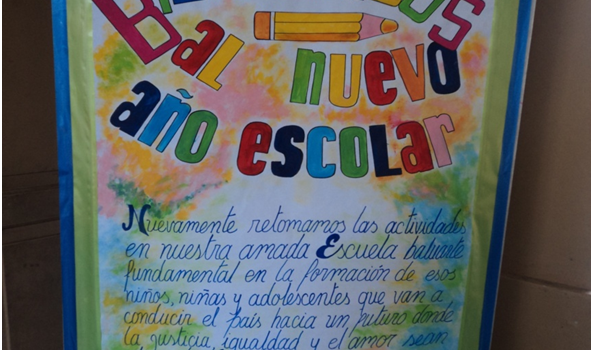 al nuevo
año escolar
Nuevamente retomamos las actividades
en nuestra amada Escuela baluarte
fundamental en la formación de esos
niños, niñas y adolescentes que van a
conducir el país hacia un futuro donde
la justicia, igualdad y el amor sean